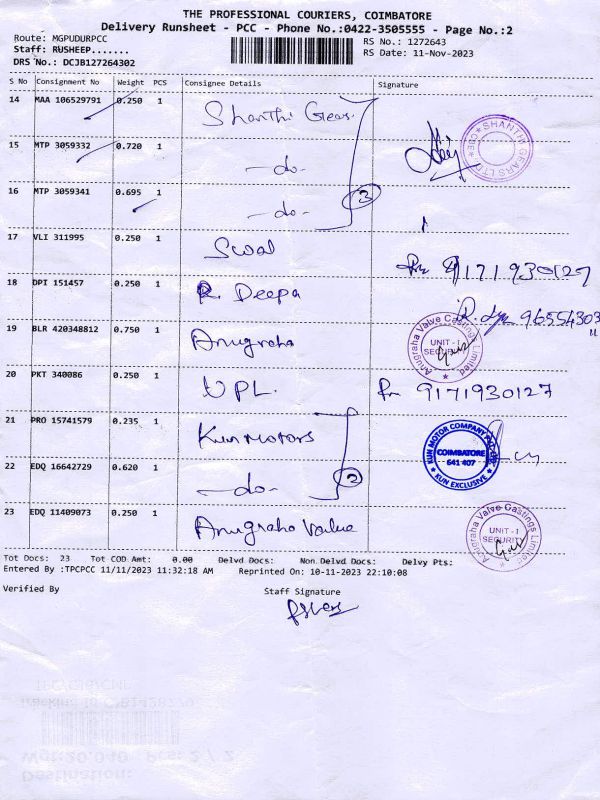 THE PROFESSIONAL COURIERS, COIMBATORE
Delivery Runsheet - PCC - Phone No.:0422-3505555 - Page No.:2
Route: MGPUDURPCC
RS No.: 1272643
Staff: RUSHEEP.......
RS Date: 11-Nov-2023
DRS No.: DCJB127264302
S No Consignment No Weight PCS Consignee Details Signature
14 MAA 106529791 0.250 1 Shanthi Gears
15 MTP 3059332 0.720 1 -do- SHANTHI GEARS LTD. CBE
16 MTP 3059341 0.695 1 -do- 3
17 VLI 311995 0.250 1 Swal 9171930127
18 DPI 151457 0.250 1 R. Deepa
19 BLR 420348812 0.750 1 Anugraha Anugraha Valve Castings Limited UNIT - I SECURITY
20 PKT 340086 0.250 1 UPL. 9171930127
21 PRO 15741579 0.235 1 Kun Motors KUN MOTOR COMPANY PVT. LTD. COIMBATORE 641 407 KUN EXCLUSIVE
22 EDQ 16642729 0.620 1 -do- 2
23 EDQ 11409073 0.250 1 Anugraha Value Anugraha Valve Castings Limited UNIT - I SECURITY
Tot Docs: 23 Tot COD Amt: 0.00 Delvd Docs: Non Delvd Docs: Delvy Pts:
Entered By :TPCPCC 11/11/2023 11:32:18 AM Reprinted On: 10-11-2023 22:10:08
Verified By Staff Signature